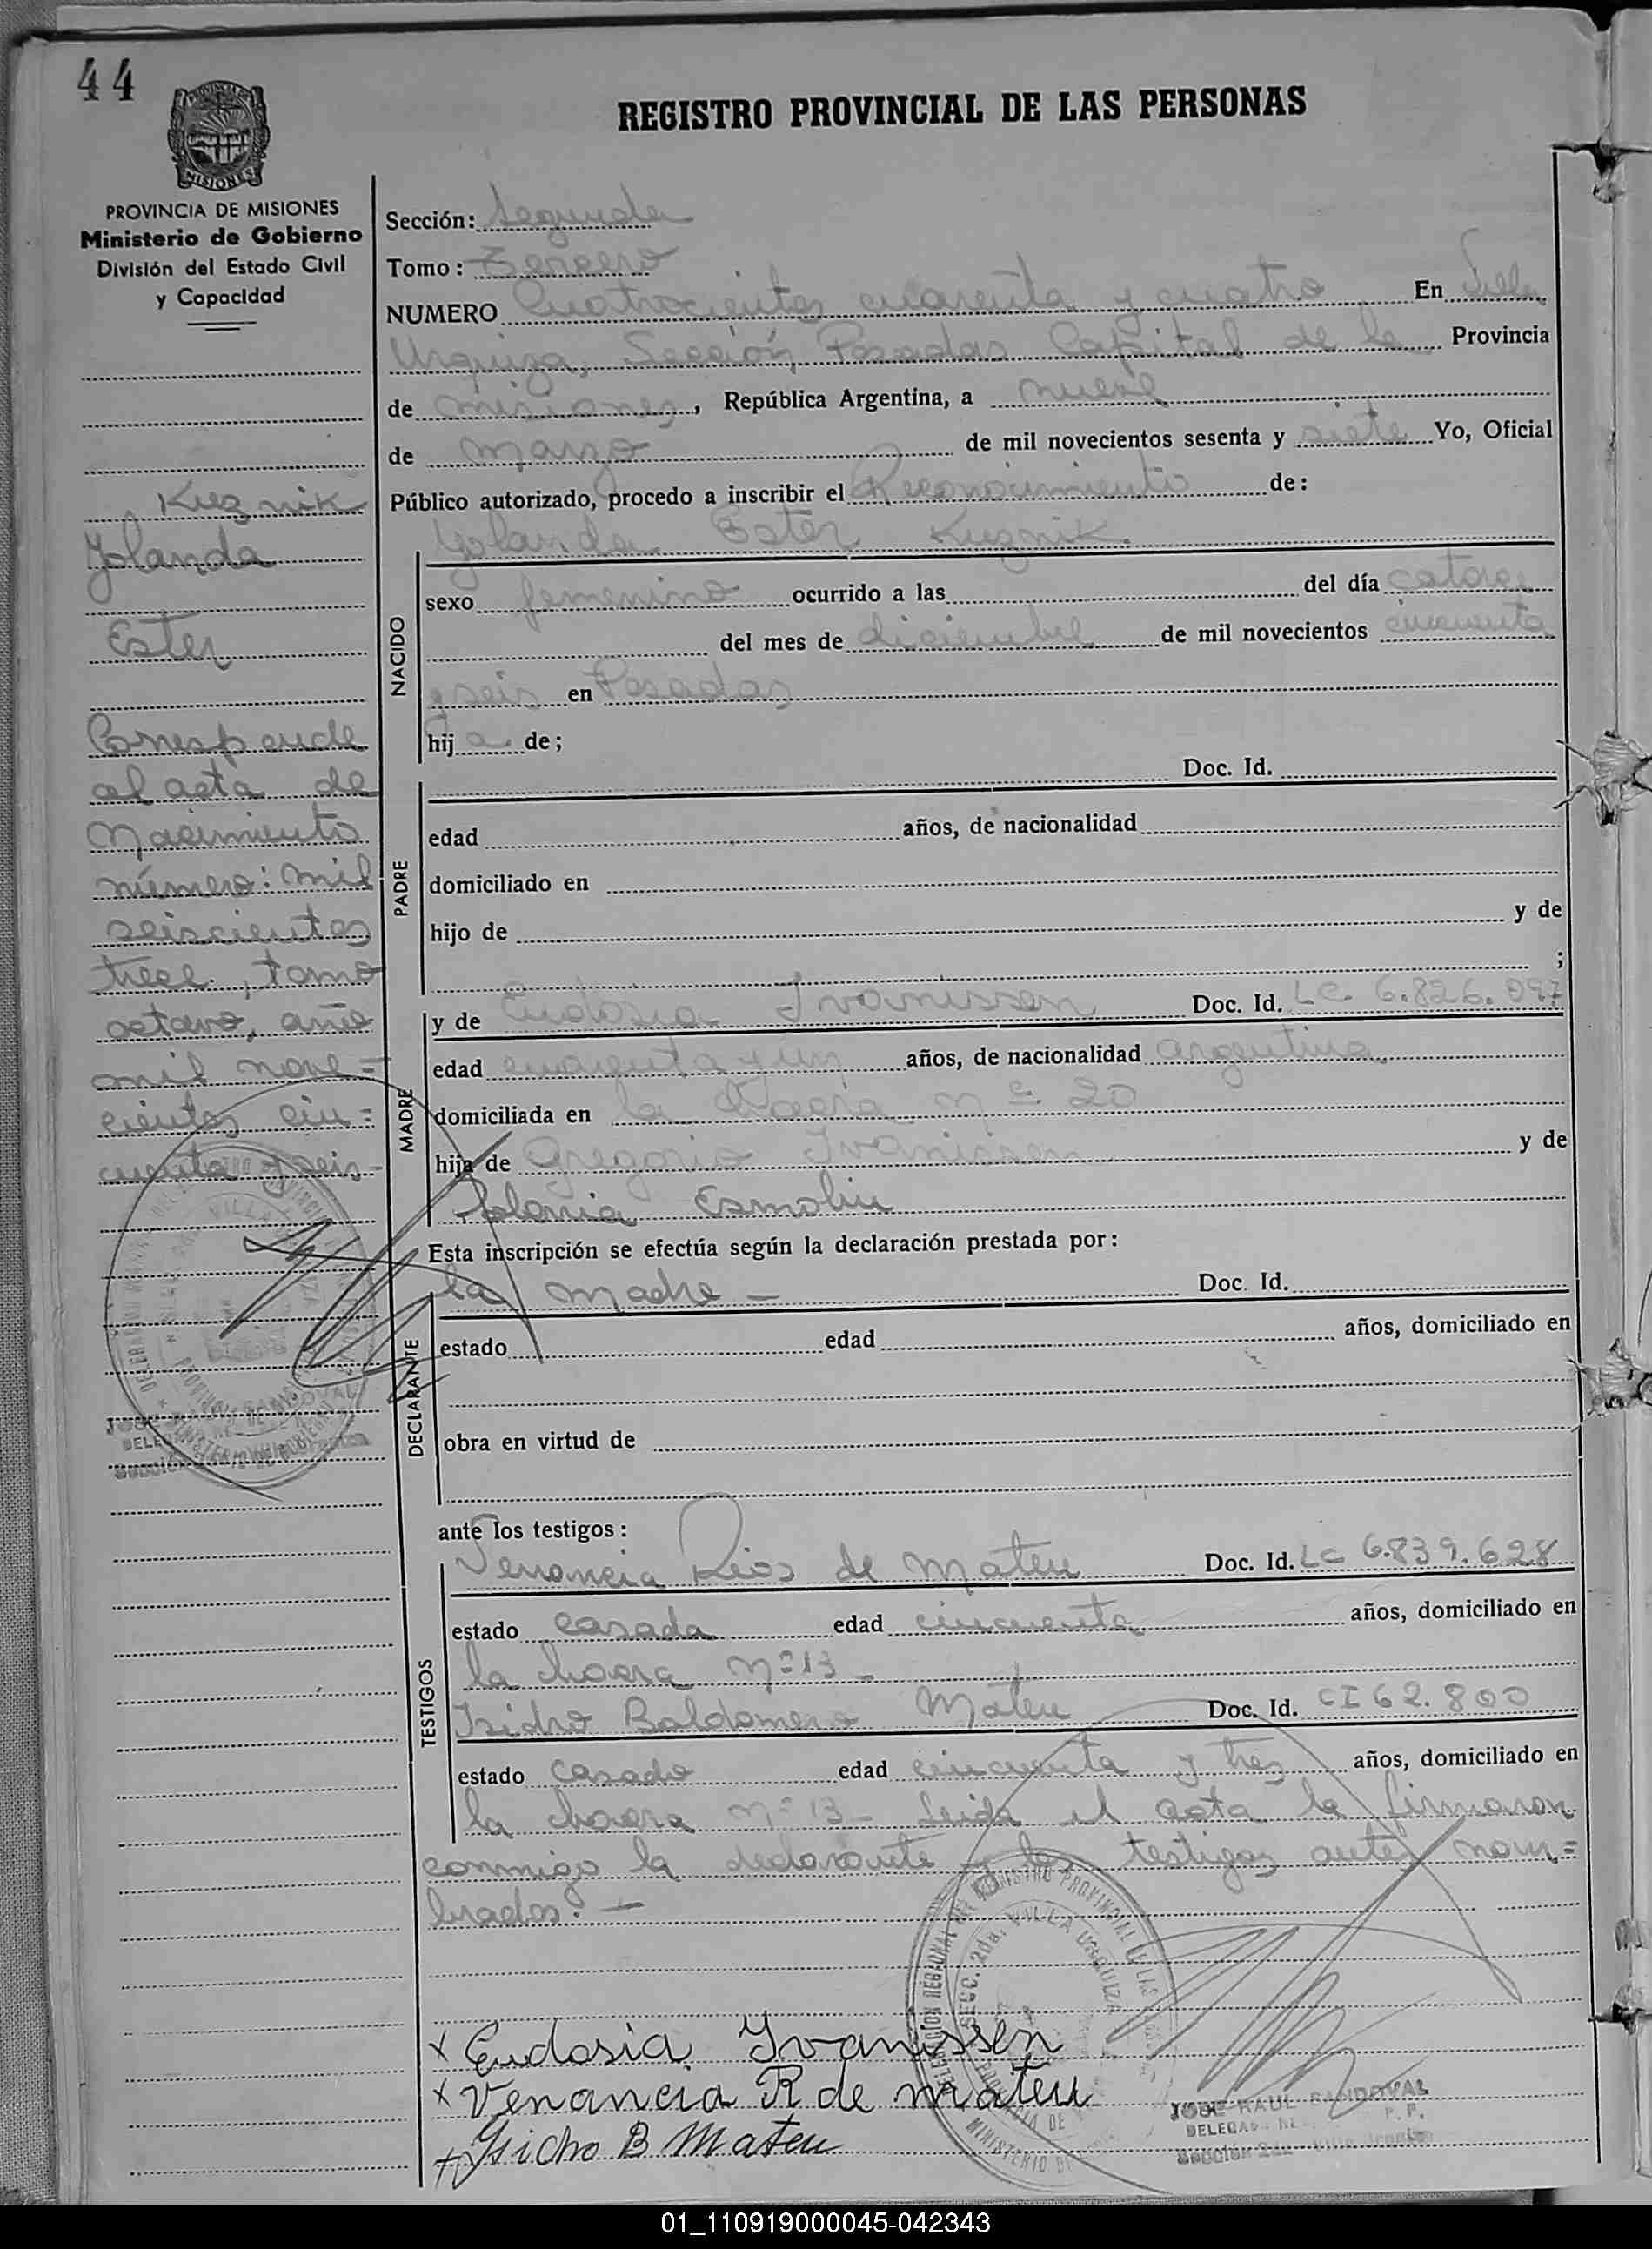 44
REGISTRO PROVINCIAL DE LAS PERSONAS
MISIONES
PROVINCIA DE MISIONES
Ministerio de Gobierno
División del Estado Civil
y Capacidad
Kuznik
Yolanda
Ester
Corresponde
al acta de
Nacimiento
número: mil
seiscientos
trece, tomo
octavo, año
mil nove=
cientos cin=
cuenta y seis-
Sección: Segunda
Tomo: Tercero
NUMERO Cuatrocientos cuarenta y cuatro En Villa
Urquiza, Sección Posadas Capital de la Provincia
de Misiones, República Argentina, a nueve
de marzo de mil novecientos sesenta y siete Yo, Oficial
Público autorizado, procedo a inscribir el Reconocimiento de:
Yolanda Ester Kuznik.
NACIDO
sexo femenino ocurrido a las del día catorce
del mes de diciembre de mil novecientos cincuenta
y seis en Posadas
hij a de;
Doc. Id.
PADRE
edad años, de nacionalidad
domiciliado en
hijo de y de
;
y de Eudosia Ivanissen Doc. Id. LC 6.826.097
MADRE
edad cuarenta y un años, de nacionalidad argentina
domiciliada en la chacra nº 20
hija de Gregorio Ivanissen y de
Polonia Esmoliu
Esta inscripción se efectúa según la declaración prestada por:
la madre - Doc. Id.
DECLARANTE
estado edad años, domiciliado en
obra en virtud de
ante los testigos:
Venancia Rios de Mateu Doc. Id. LC 6.839.628
TESTIGOS
estado casada edad cincuenta años, domiciliado en
la chacra nº 13-
Isidro Baldomero Mateu Doc. Id. CI 62.800
estado casado edad cincuenta y tres años, domiciliado en
la chacra nº 13- Leida el acta la firmaron
conmigo la declarante y los testigos antes nom=
brados.-
x Eudosia Ivanissen
x Venancia R de mateu
x Isidro B Mateu
SECC. 2da. VILLA URQUIZA
JOSE RAUL SANDOVAL
01_110919000045-042343